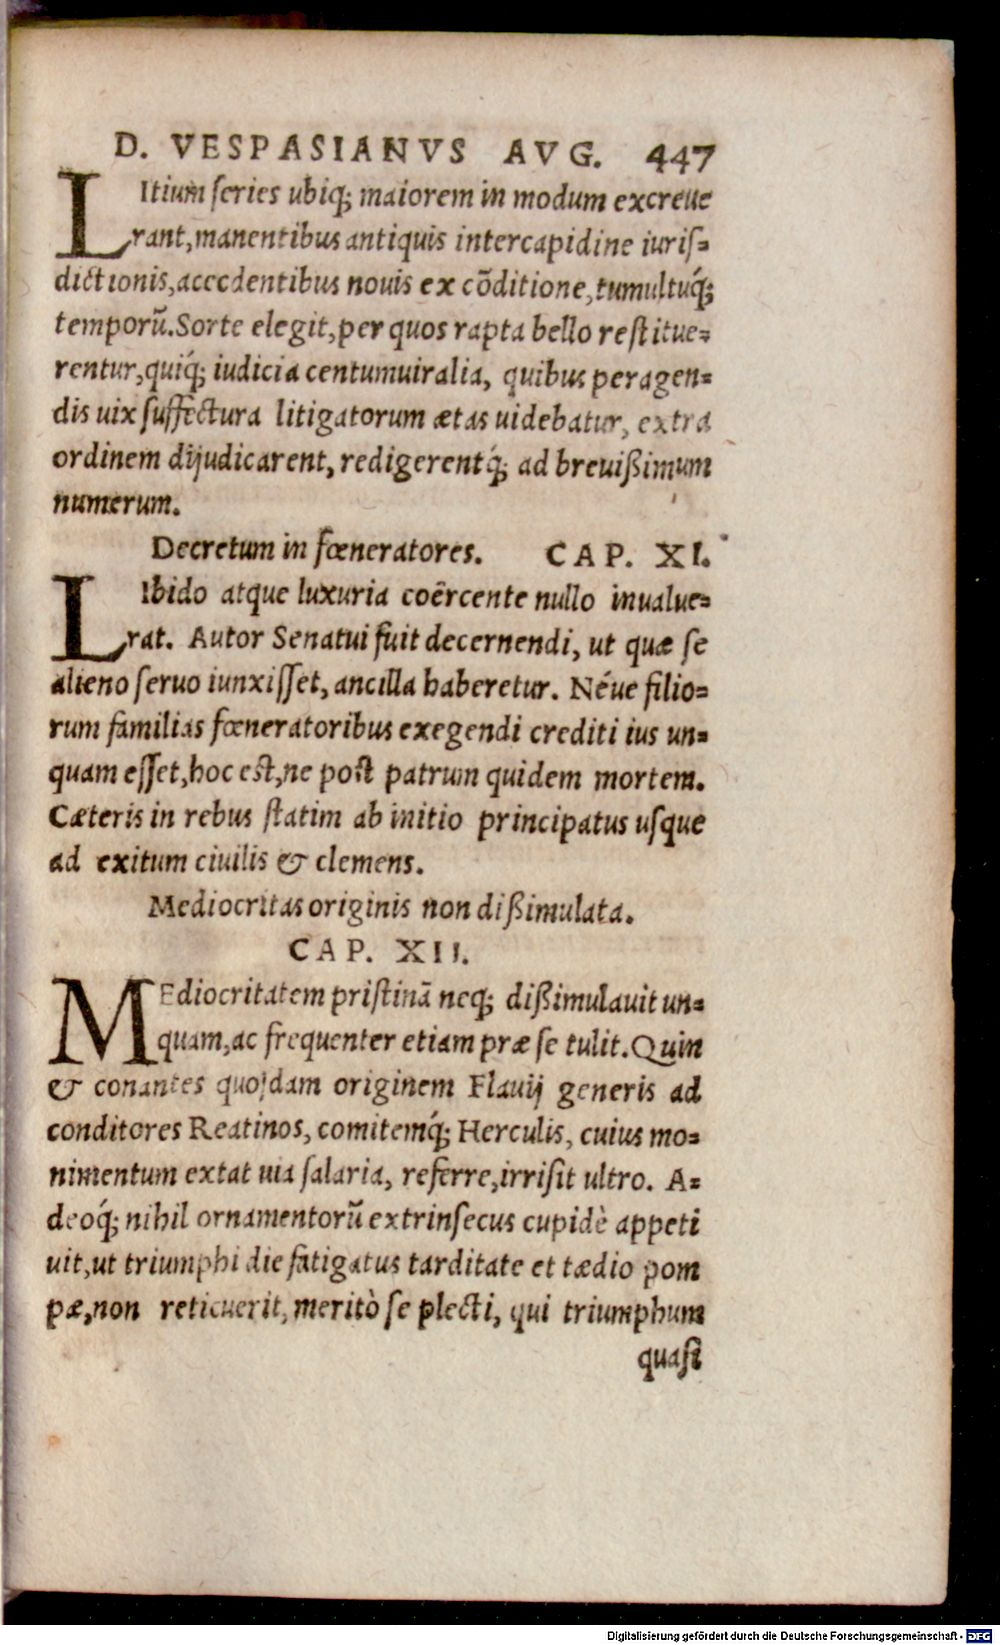 D. VESPASIANVS AVG. 447
LItium ſeries ubiq; maiorem in modum excreue
rant, manentibus antiquis intercapidine iuriſ-
dictionis, accedentibus nouis ex cõditione, tumultuq́;
temporũ. Sorte elegit, per quos rapta bello reſtitue-
rentur, quiq́; iudicia centumuiralia, quibus peragen-
dis uix ſuffectura litigatorum ætas uidebatur, extra
ordinem dijudicarent, redigerentq́; ad breuißimum
numerum.
Decretum in fœneratores. CAP. XI.
LIbido atque luxuria coërcente nullo inualue-
rat. Autor Senatui fuit decernendi, ut quæ ſe
alieno ſeruo iunxiſſet, ancilla haberetur. Néue filio-
rum familias fœneratoribus exegendi crediti ius un-
quam eſſet, hoc est, ne poſt patrum quidem mortem.
Cæteris in rebus ſtatim ab initio principatus uſque
ad exitum ciuilis & clemens.
Mediocritas originis non dißimulata.
CAP. XII.
MEdiocritatem priſtinã neq; dißimulauit un-
quam, ac frequenter etiam præ ſe tulit. Quin
& conantes quoſdam originem Flauij generis ad
conditores Reatinos, comitemq́; Herculis, cuius mo-
nimentum extat uia ſalaria, referre, irriſit ultro. A-
deoq́; nihil ornamentorũ extrinſecus cupidè appeti
uit, ut triumphi die fatigatus tarditate et tædio pom
pæ, non reticuerit, meritò ſe plecti, qui triumphum
quaſi
Digitalisierung gefördert durch die Deutsche Forschungsgemeinschaft - DFG